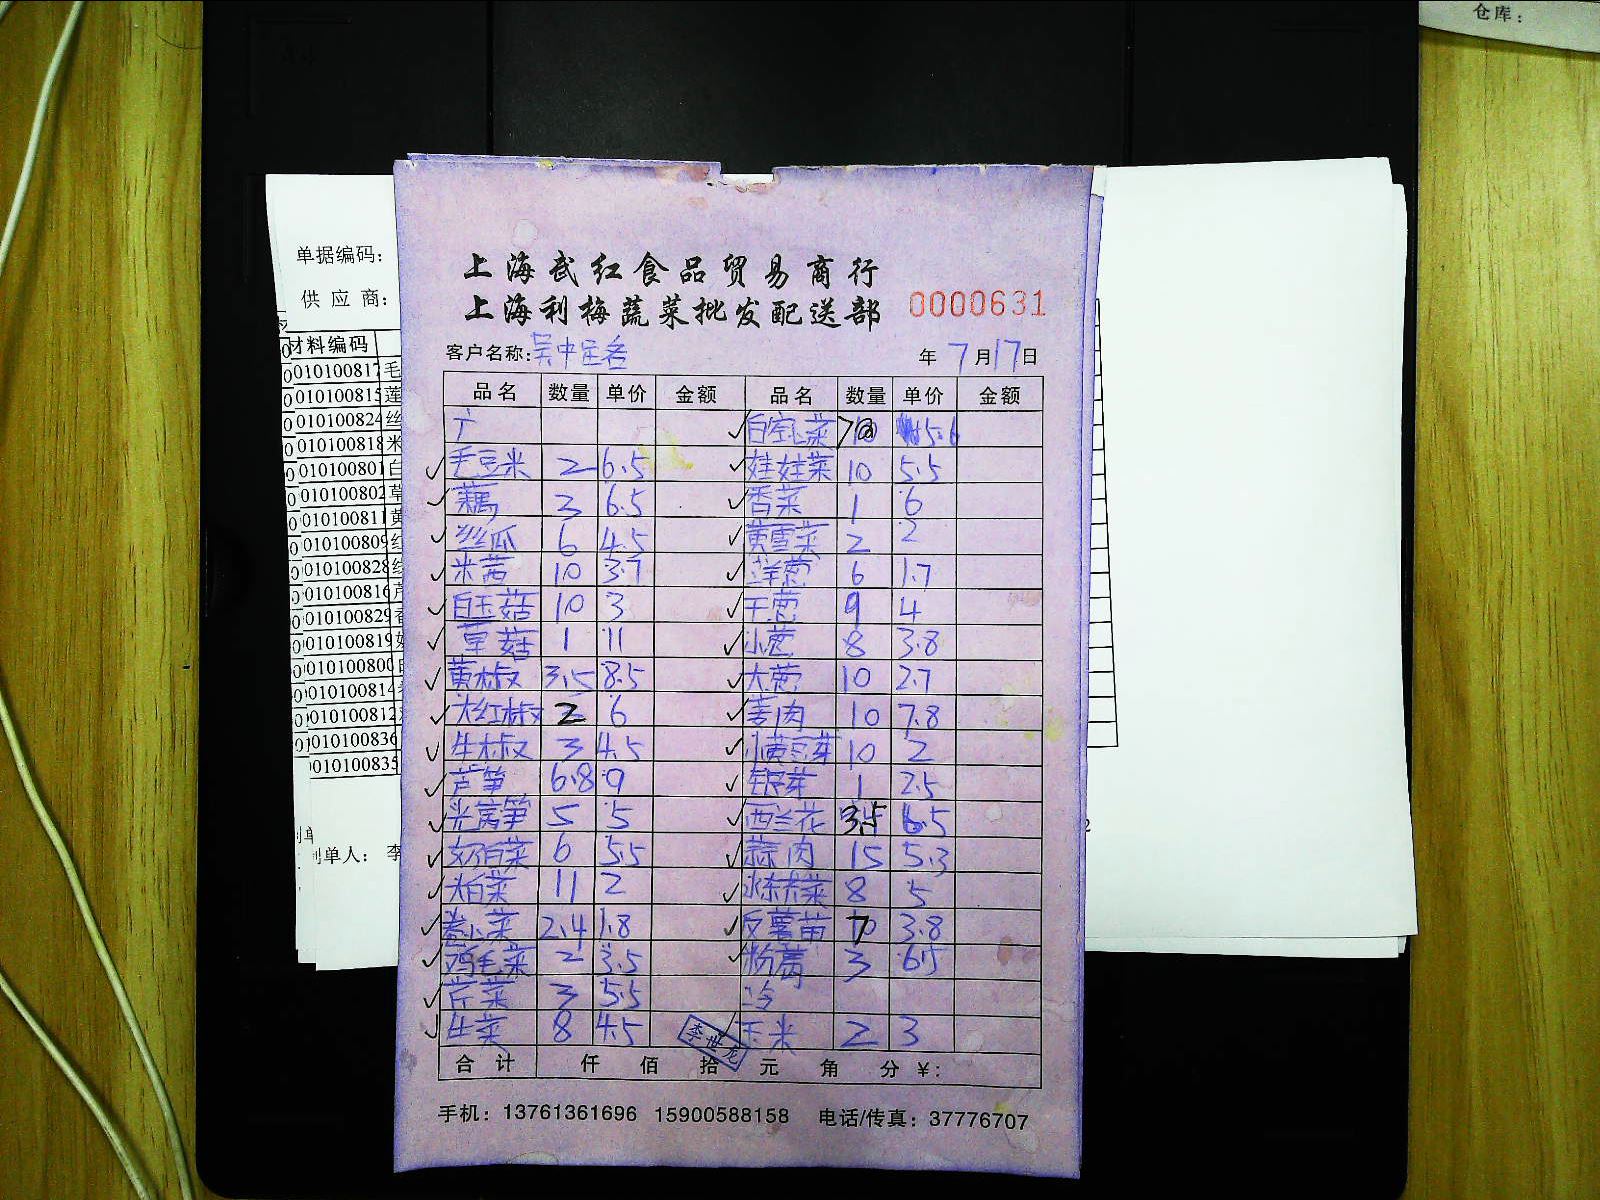 仓库：
单据编码：
供 应 商：
材料编码
010100817 毛
010100815 莲
010100824 丝
010100818 米
010100801 白
010100802 草
010100811 黄
010100809 红
010100828
010100816 芦
010100829 香
010100819
010100800
010100814
010100812
010100836
010100835
制单人： 李
上海武红食品贸易商行
上海利梅蔬菜批发配送部 0000631
客户名称： 年 7 月 17 日
品名 数量 单价 金额 品名 数量 单价 金额
白空心菜 5.6
毛豆米 2 6.5 娃娃菜 10 5.5
藕 3 6.5 香菜 1 6
丝瓜 6 4.5 黄雪菜 2 2
米茜 10 3.7 洋葱 6 1.7
白玉菇 10 3 干葱 9 4
草菇 1 11 小葱 8 3.8
黄椒 3.5 8.5 大葱 10 2.7
大红椒 2 6 姜肉 10 7.8
牛椒 3 4.5 小黄豆芽 10 2
芦笋 6.8 9 银芽 1 2.5
光莴笋 5 5 西兰花 3.5 6.5
奶白菜 6 5.5 蒜肉 15 5.3
大白菜 11 2 8 5
卷心菜 2.4 1.8 反薯苗 7 3.8
鸡毛菜 2 3.5 粉葛 3 6.5
芹菜 3 5.5
生菜 8 4.5 玉米 2 3
李世龙
合计 仟 佰 拾 元 角 分 ¥：
手机：13761361696 15900588158 电话/传真：37776707